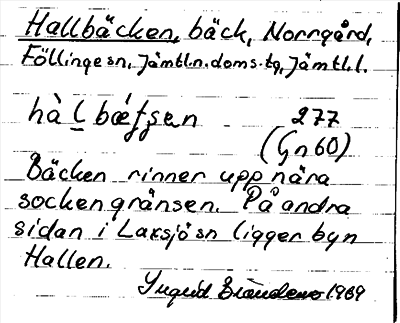 Hallbäcken, bäck, Norrgård,
Föllinge sn, Jämtl.n.doms.tg, Jämtl.l.
hà l bǽʃʃen 277
(Gn 60)
Bäcken rinner upp nära
sockengränsen. På andra
sidan i Laxsjö sn ligger byn
Hallen.
Ingrid 1969